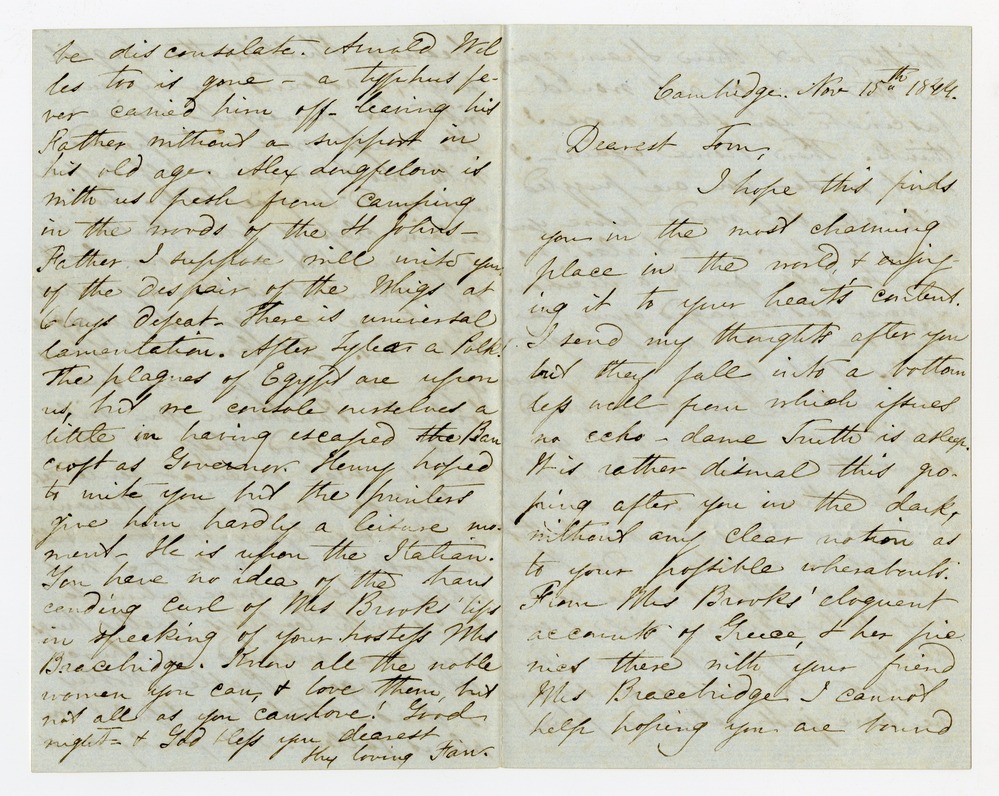 Cambridge. Nov 15th 1844.
Dearest Tom,
I hope this finds
you in the most charming
place in the world, & enjoy-
ing it to your heart's content.
I send my thoughts after you
but they fall into a bottom
less well from which issues
no echo - dame Truth is asleep.
It is rather dismal this gro-
ping after you in the dark,
without any clear notion as
to your possible whereabouts.
From Mrs Brooks' eloquent
accounts of Greece, & her pic
nics there with your friend
Mrs Bracebridge I cannot
help hoping you are bound
be disconsolate. Arnold Wel
les too is gone - a typhus fe-
ver carried him off - leaving his
Father without a support in
his old age. Alex Longfellow is
with us fresh from camping
in the woods of the St Johns -
Father I suppose will write you
of the despair of the Whigs at
Clays defeat - There is universal
lamentation. After Tyler a Polk!
The plagues of Egypt are upon
us, but we console ourselves a
little in having escaped the Ban
croft as Governor. Henry hoped
to write you but the printers
give him hardly a leisure mo-
ment - He is upon the Italian.
You have no idea of the trans
cending curl of Mrs Brooks' lips
in speaking of your hostess Mrs
Bracebridge. Know all the noble
women you can, & love them, but
not all as you can love! Good
night - & God bless you dearest
Thy loving Fan.